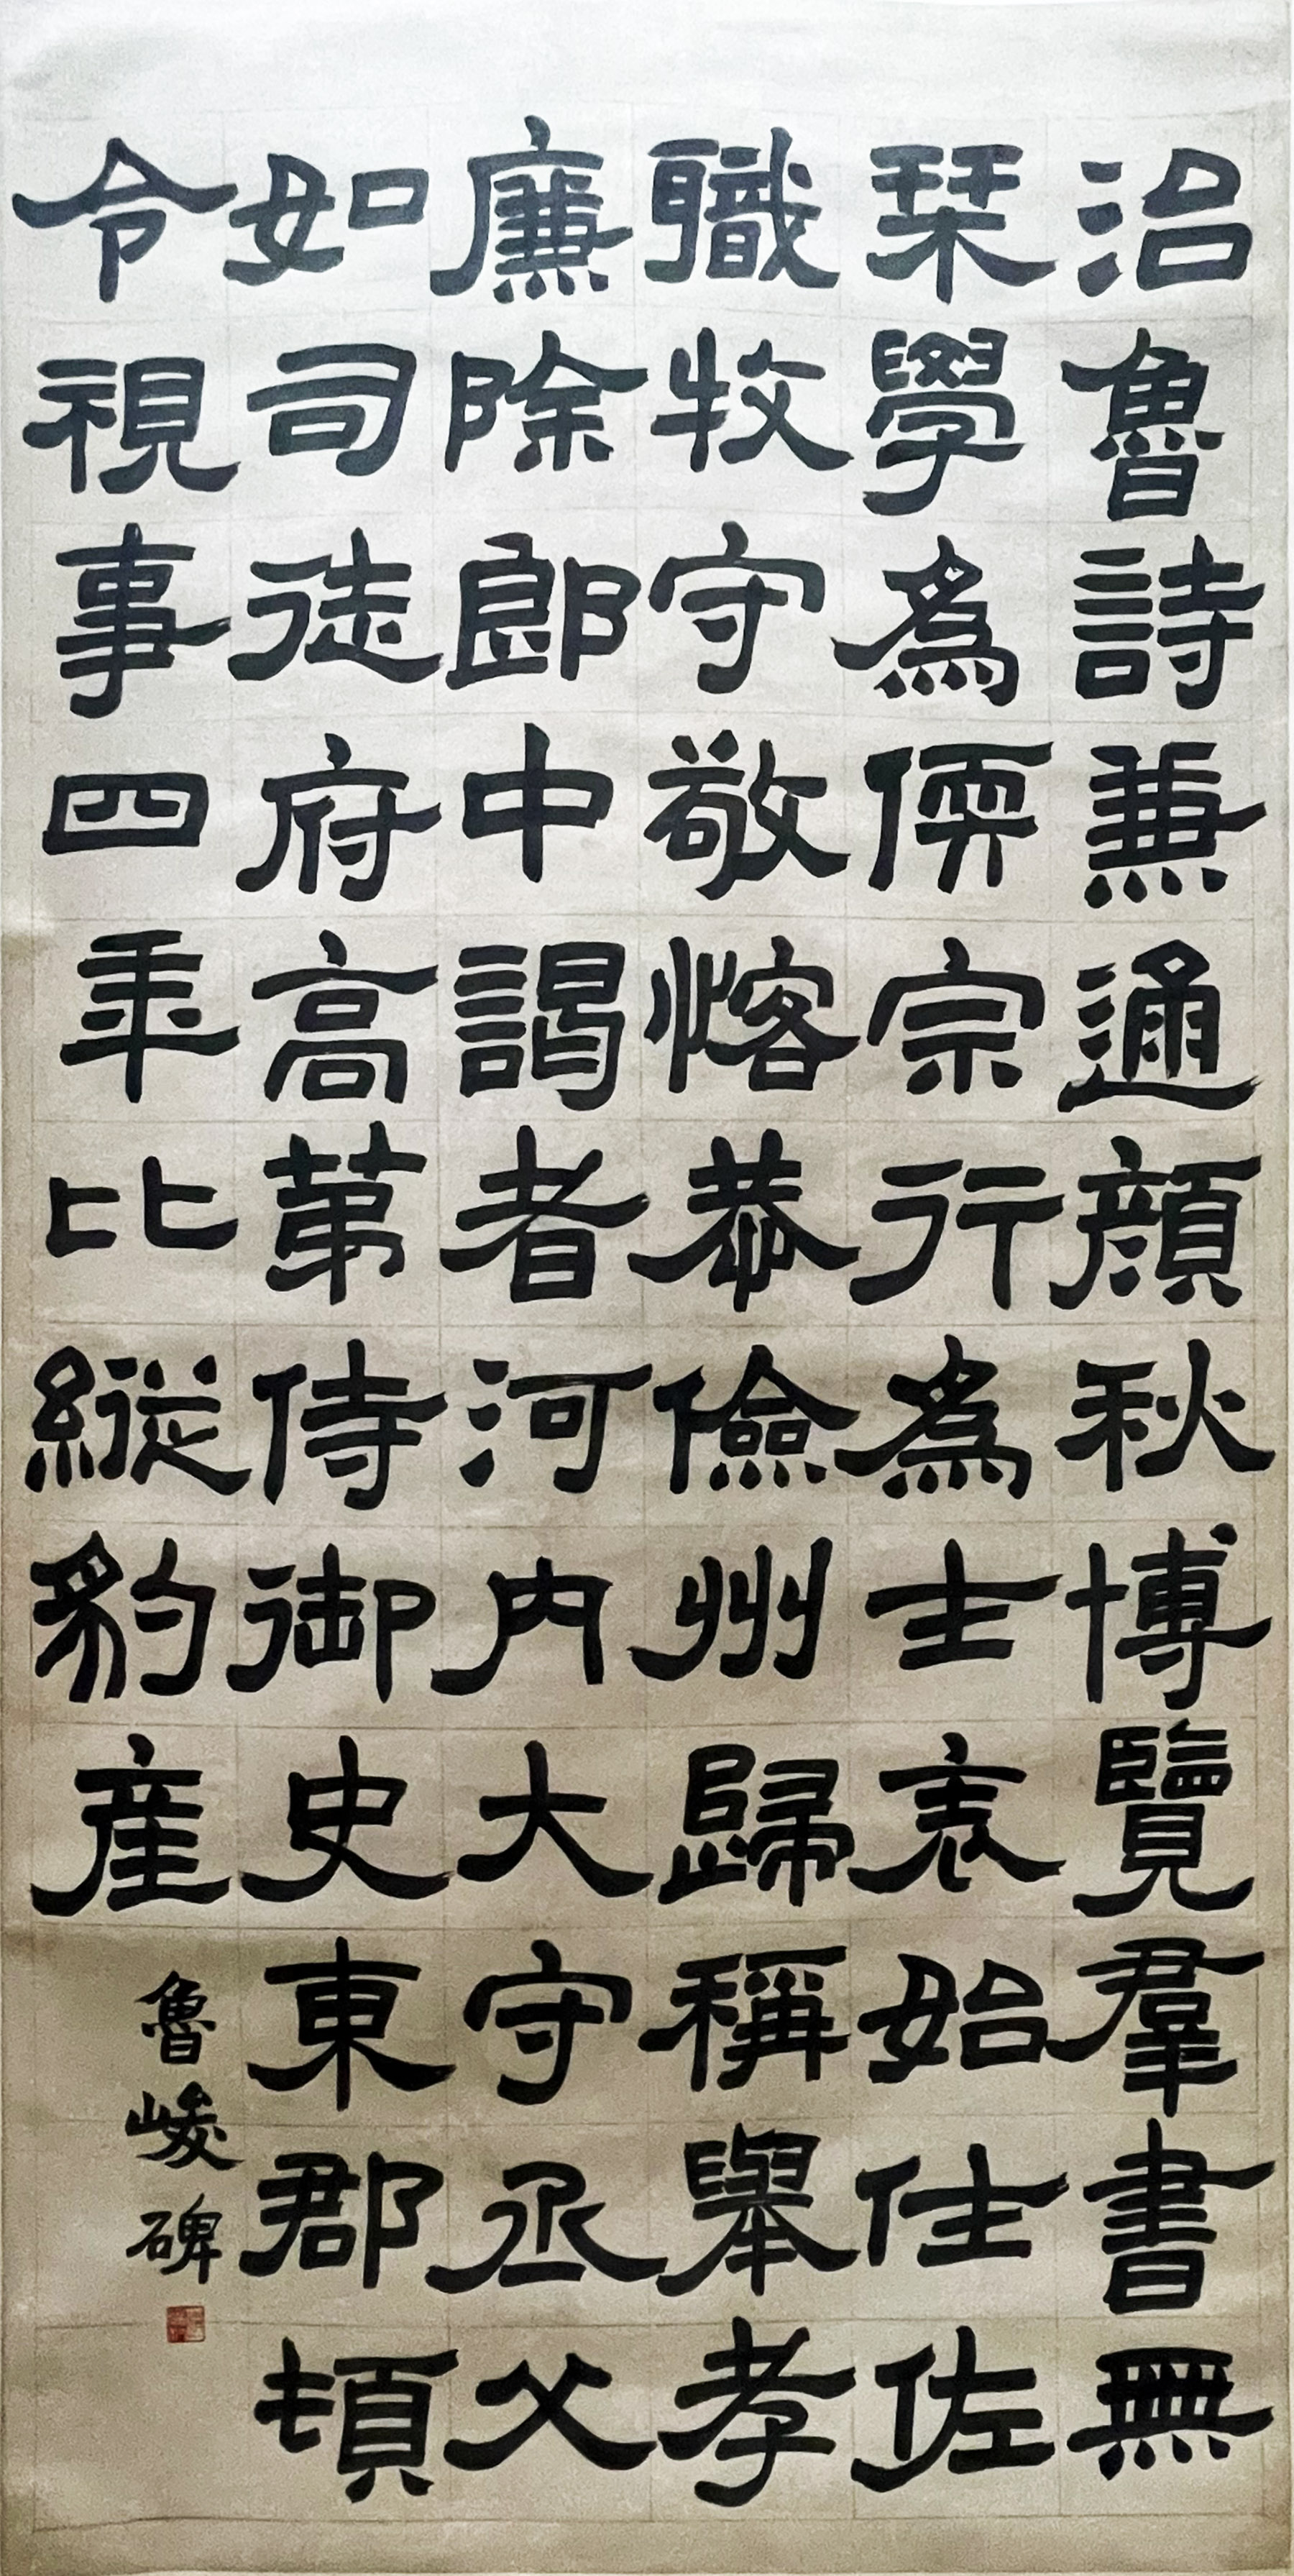 治魯詩兼通顏秋博覽羣書無
栞學為偄宗行為士表始仕佐
職牧守敬恪恭儉州歸稱舉孝
廉除郎中謁者河內大守丞父
如司徒府高第侍御史東郡頓
令視事四年比縱豹產
魯峻碑